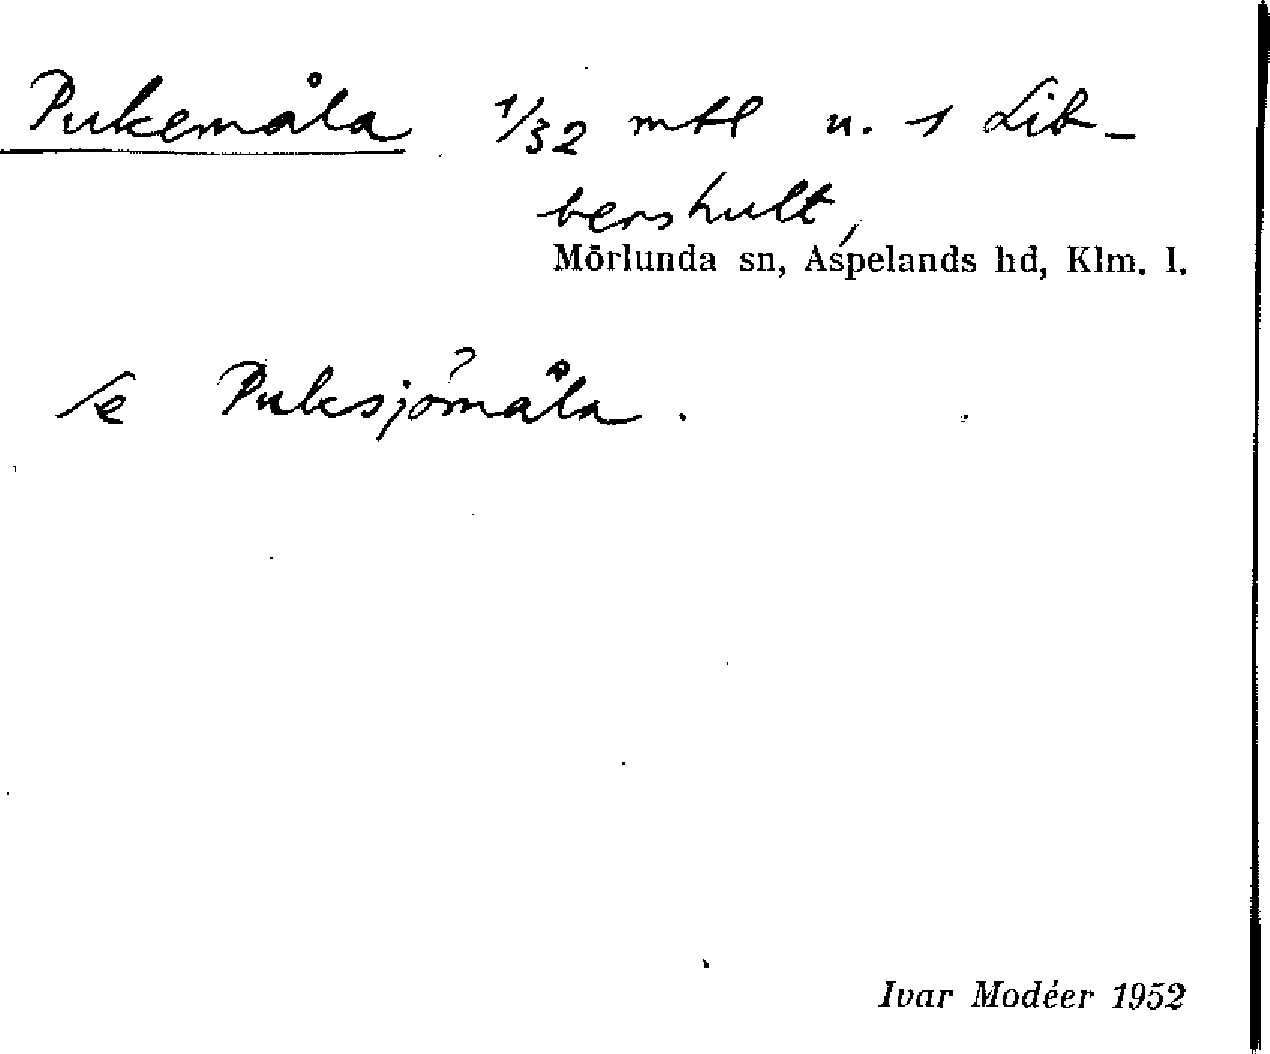 Pukemåla 1/32 mtl u. 1 Lib-
bershult,
Mörlunda sn, Aspelands hd, Klm. l.
se Puksjömåla.
Ivar Modéer 1952